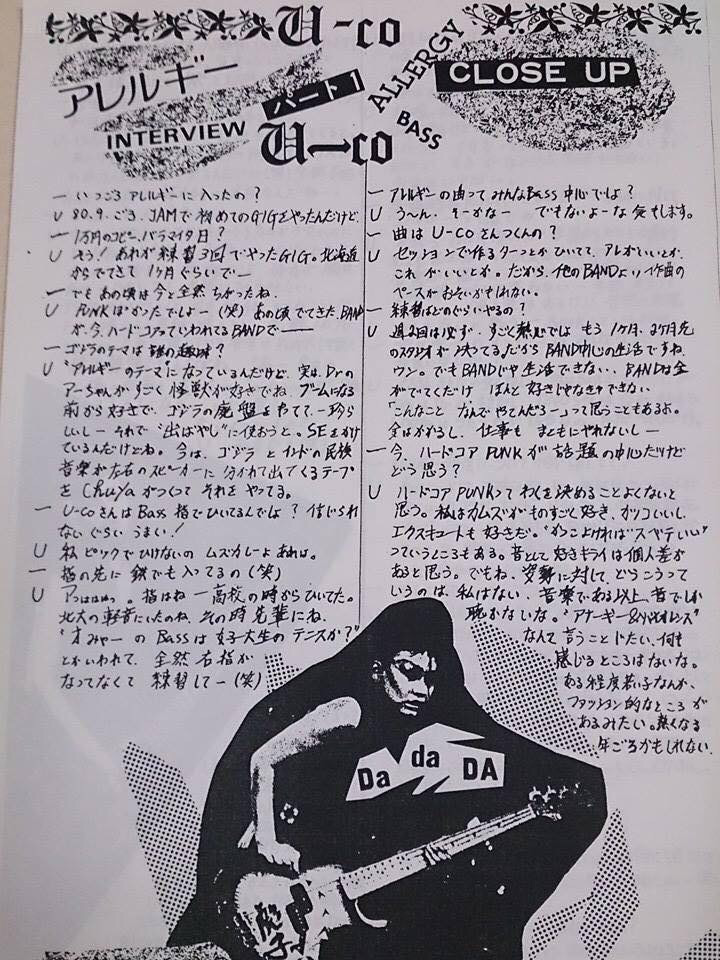 U-co
アレルギー
INTERVIEW
パート1
U-co
ALLERGY
BASS
CLOSE UP
ー いつごろ アレルギーに入ったの?
U 80.9.ごろ. JAMで初めてのGIGをやったんだけど.
ー 1万円のコピー、バラマイタ日?
U そう! あれが練習3回でやったGIG。北海道
からでてきて 1ヶ月ぐらいでー
ー でもあの頃は今と全然ちがったね.
U PUNKばかったでしょー(笑)あの頃でてきたBAND
が、今、ハードコアっていわれてるBANDでー
ー ゴジラのテーマは 誰の趣味?
U "アレルギーのテーマになっているんだけど、実は、Drの
アーちゃんがすごく怪獣が好きでね、ブームになる
前から好きで、ゴジラの廃盤をもてて、一珍ら
しいしー それで"出ばやし"に使おうと。SEをかけ
ているんだけどね。今は、ゴジラとインドの民族
音楽が左右のスピーカーに分かれて出てくるテープ
を Chuya がつくって それを やってる。
ー U-coさんは Bass 指でひいてるんでしょ? 信じられ
ないぐらい うまい!
U 私 ピックでひけないの ムズカシーよ あれは。
ー 指の先に 鉄でも入ってるの(笑)
U アっはははっ。指はね 一高校の時からひいてた。
北大の軽音にいたのね、その時先輩にね、
"オみゃーの Bassは 女子大生のテニスか?"
とかいわれて、全然右指が
なってなくて 練習してー(笑)
ー アレルギーの曲ってみんなBass中心でしょ?
U う〜ん、そーかなー でもないよーな気もします。
ー 曲は U-coさんつくんの?
U セッションで作る ターっとかひいてて、アレがいいとか、
これがいいとか。だから、他のBANDより作曲の
ペースがおそいかもしれない。
ー 練習はどのぐらいやるの?
U 週2回は必ず、すごく熱心でしょ もう1ヶ月、2ヶ月先
のスタジオが決ってる だからBAND中心の生活ですね.
ウン。でもBANDじゃ生活できない、BANDは金
がでてくだけ ほんと好きじゃなきゃできない
「こんなこと なんでやってんだろー」って思うこともあるよ。
金はかかるし、仕事も まともにやれないしー
ー 今、ハードコアPUNKが話題の中心だけど
どう思う?
U ハードコアPUNKって わくを決めることよくないと
思う。私はカムズがものすごく好き、カッコいいし、
エクスキュートも好きだ。"かっこよければ"スベテいい"
っていうところもある。音として好きキライは個人差が
あると思う。でもね、姿勢に対して、どうこうって
いうのは、私はない、音楽である以上、音でしか
聴かないな。"アナーキー&バイオレンス"
なんて 言うことじたい、何も
感じるところはないな。
ある程度若い子なんか、
ファッション的なところが
あるみたい。熱くなる
年ごろかもしれない.
Da da DA